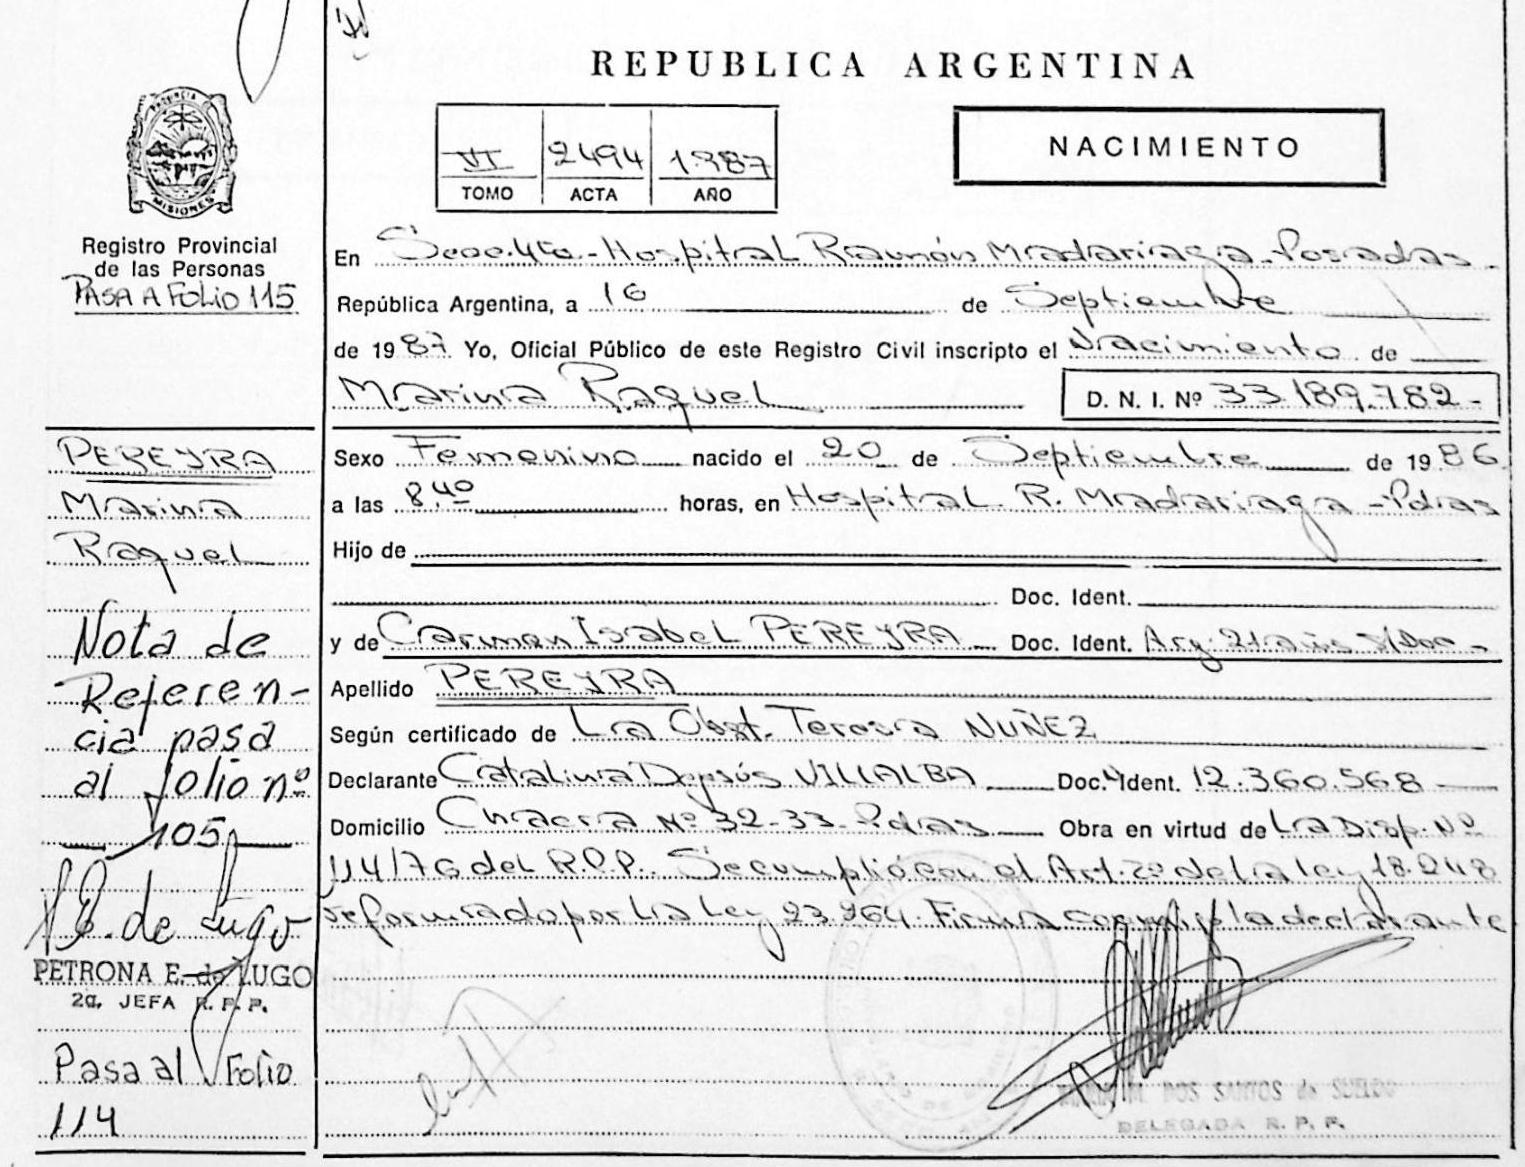 REPUBLICA ARGENTINA
NACIMIENTO
VI 2494 1.987
TOMO ACTA AÑO
PROVINCIA
MISIONES
Registro Provincial
de las Personas
PASA A FOLIO 115
En Secc. 4ta - Hospital Ramón Madariaga - Posadas -
República Argentina, a 16 de Septiembre
de 1987. Yo, Oficial Público de este Registro Civil inscripto el Nacimiento de
Marina Raquel D. N. I. Nº 33.189.782-
PEREYRA
Marina
Raquel
Nota de
Referen-
cia pasa
al folio nº
105
P.E. de Lugo
PETRONA E. de LUGO
2a. JEFA R.P.P.
Pasa al Folio
114
Sexo Femenino nacido el 20 de Septiembre de 1986
a las 8,40 horas, en Hospital R. Madariaga - Pdas
Hijo de
Doc. Ident.
y de Carmen Isabel PEREYRA Doc. Ident. Arg. 21 años s/Doc -
Apellido PEREYRA
Según certificado de La Obst. Teresa NUÑEZ
Declarante Catalina VILLALBA Doc. Ident. 12.360.568
Domicilio Chacra Nº 32-33- Pdas Obra en virtud de La Disp. Nº
114/76 del R.P.P. Se cumplió con el Art. 2º de la ley 18.248
reformado por la Ley 23.264. Firma la declarante
DOS SANTOS de SUELDO
DELEGADA R. P. P.